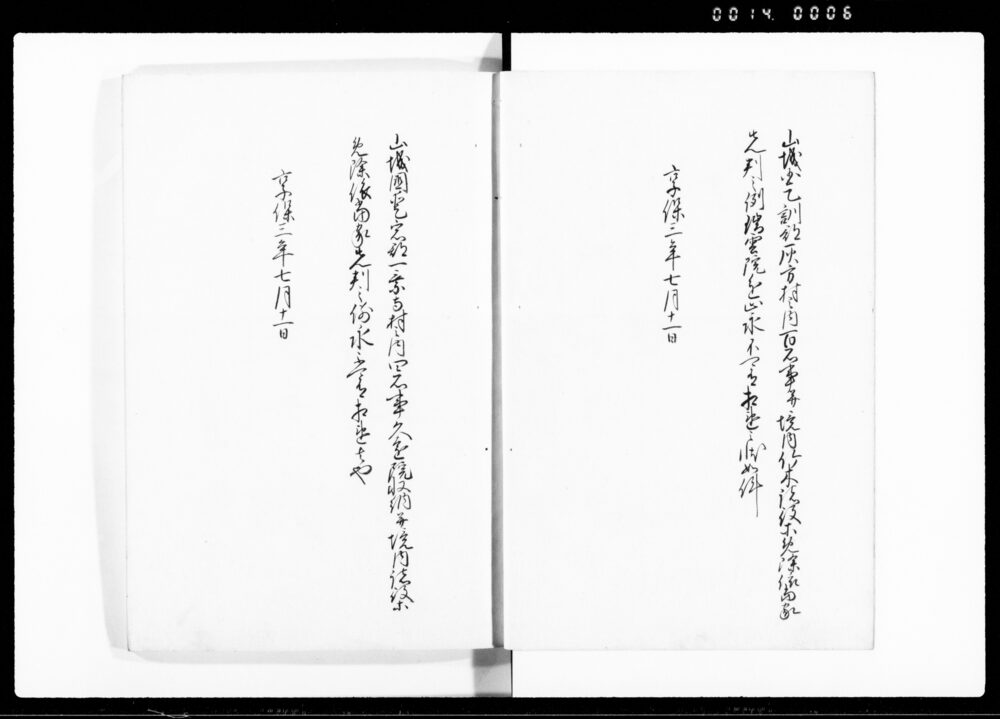 0014 0006
山城国乙訓郡灰方村之内百石事并境内竹木諸役等免除依当家
先判之例瑞雲院進止永不可有相違之状如件
享保三年七月十一日
山城国愛宕郡一乗寺村之内四石事久遠院収納并境内諸役等
免除依当家先判之例永不可有相違者也
享保三年七月十一日